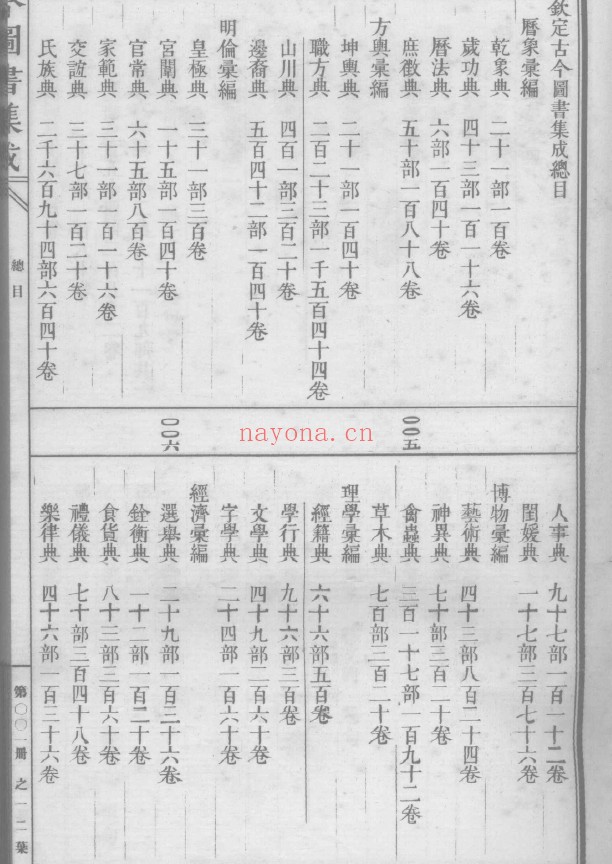 欽定古今圖書集成總目
曆象彙編
乾象典 二十一部一百卷
歲功典 四十三部一百一十六卷
曆法典 六部一百四十卷
庶徵典 五十部一百八十八卷
方輿彙編
坤輿典 二十一部一百四十卷
職方典 二百二十三部一千五百四十四卷
山川典 四百一部三百二十卷
邊裔典 五百四十二部一百四十卷
明倫彙編
皇極典 三十一部三百卷
宮闈典 一十五部一百四十卷
官常典 六十五部八百卷
家範典 三十一部一百一十六卷
交誼典 三十七部一百二十卷
氏族典 二千六百九十四部六百四十卷
〇〇五
〇〇六
nayona.cn
人事典 九十七部一百一十二卷
閨媛典 一十七部三百七十六卷
博物彙編
藝術典 四十三部八百二十四卷
神異典 七十部三百二十卷
禽蟲典 三百一十七部一百九十二卷
草木典 七百部三百二十卷
理學彙編
經籍典 六十六部五百卷
學行典 九十六部三百卷
文學典 四十九部二百六十卷
字學典 二十四部一百六十卷
經濟彙編
選舉典 二十九部一百三十六卷
銓衡典 一十二部一百二十卷
食貨典 八十三部三百六十卷
禮儀典 七十部三百四十八卷
樂律典 四十六部一百三十六卷
圖書集成
總目
第〇〇一冊 之一二葉